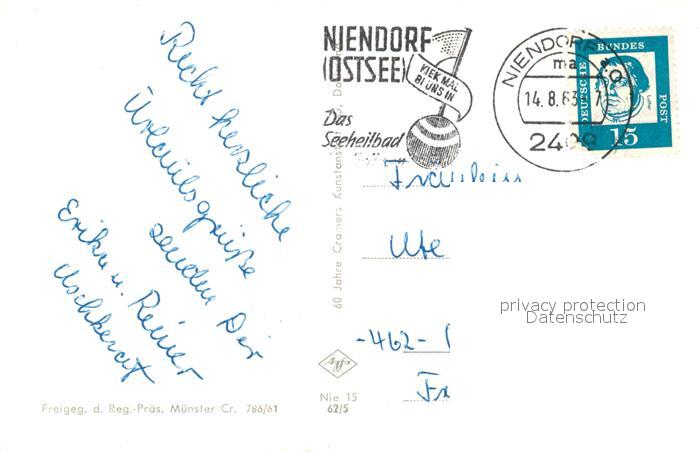 Recht herzliche
Urlaubsgrüße
senden Dir
Erika u. Reiner
NIENDORF
(OSTSEE)
KIEK MAL
BI UNS IN
Das
Seeheilbad
NIENDORF
14.8.63
DEUTSCHE BUNDES POST
15
Fräulein
Ute
-462-
60 Jahre Cramers Kunstanst
privacy protection
Datenschutz
Agfa
Freigeg. d. Reg.-Präs. Münster Cr. 786/61
Nie 15
62/5